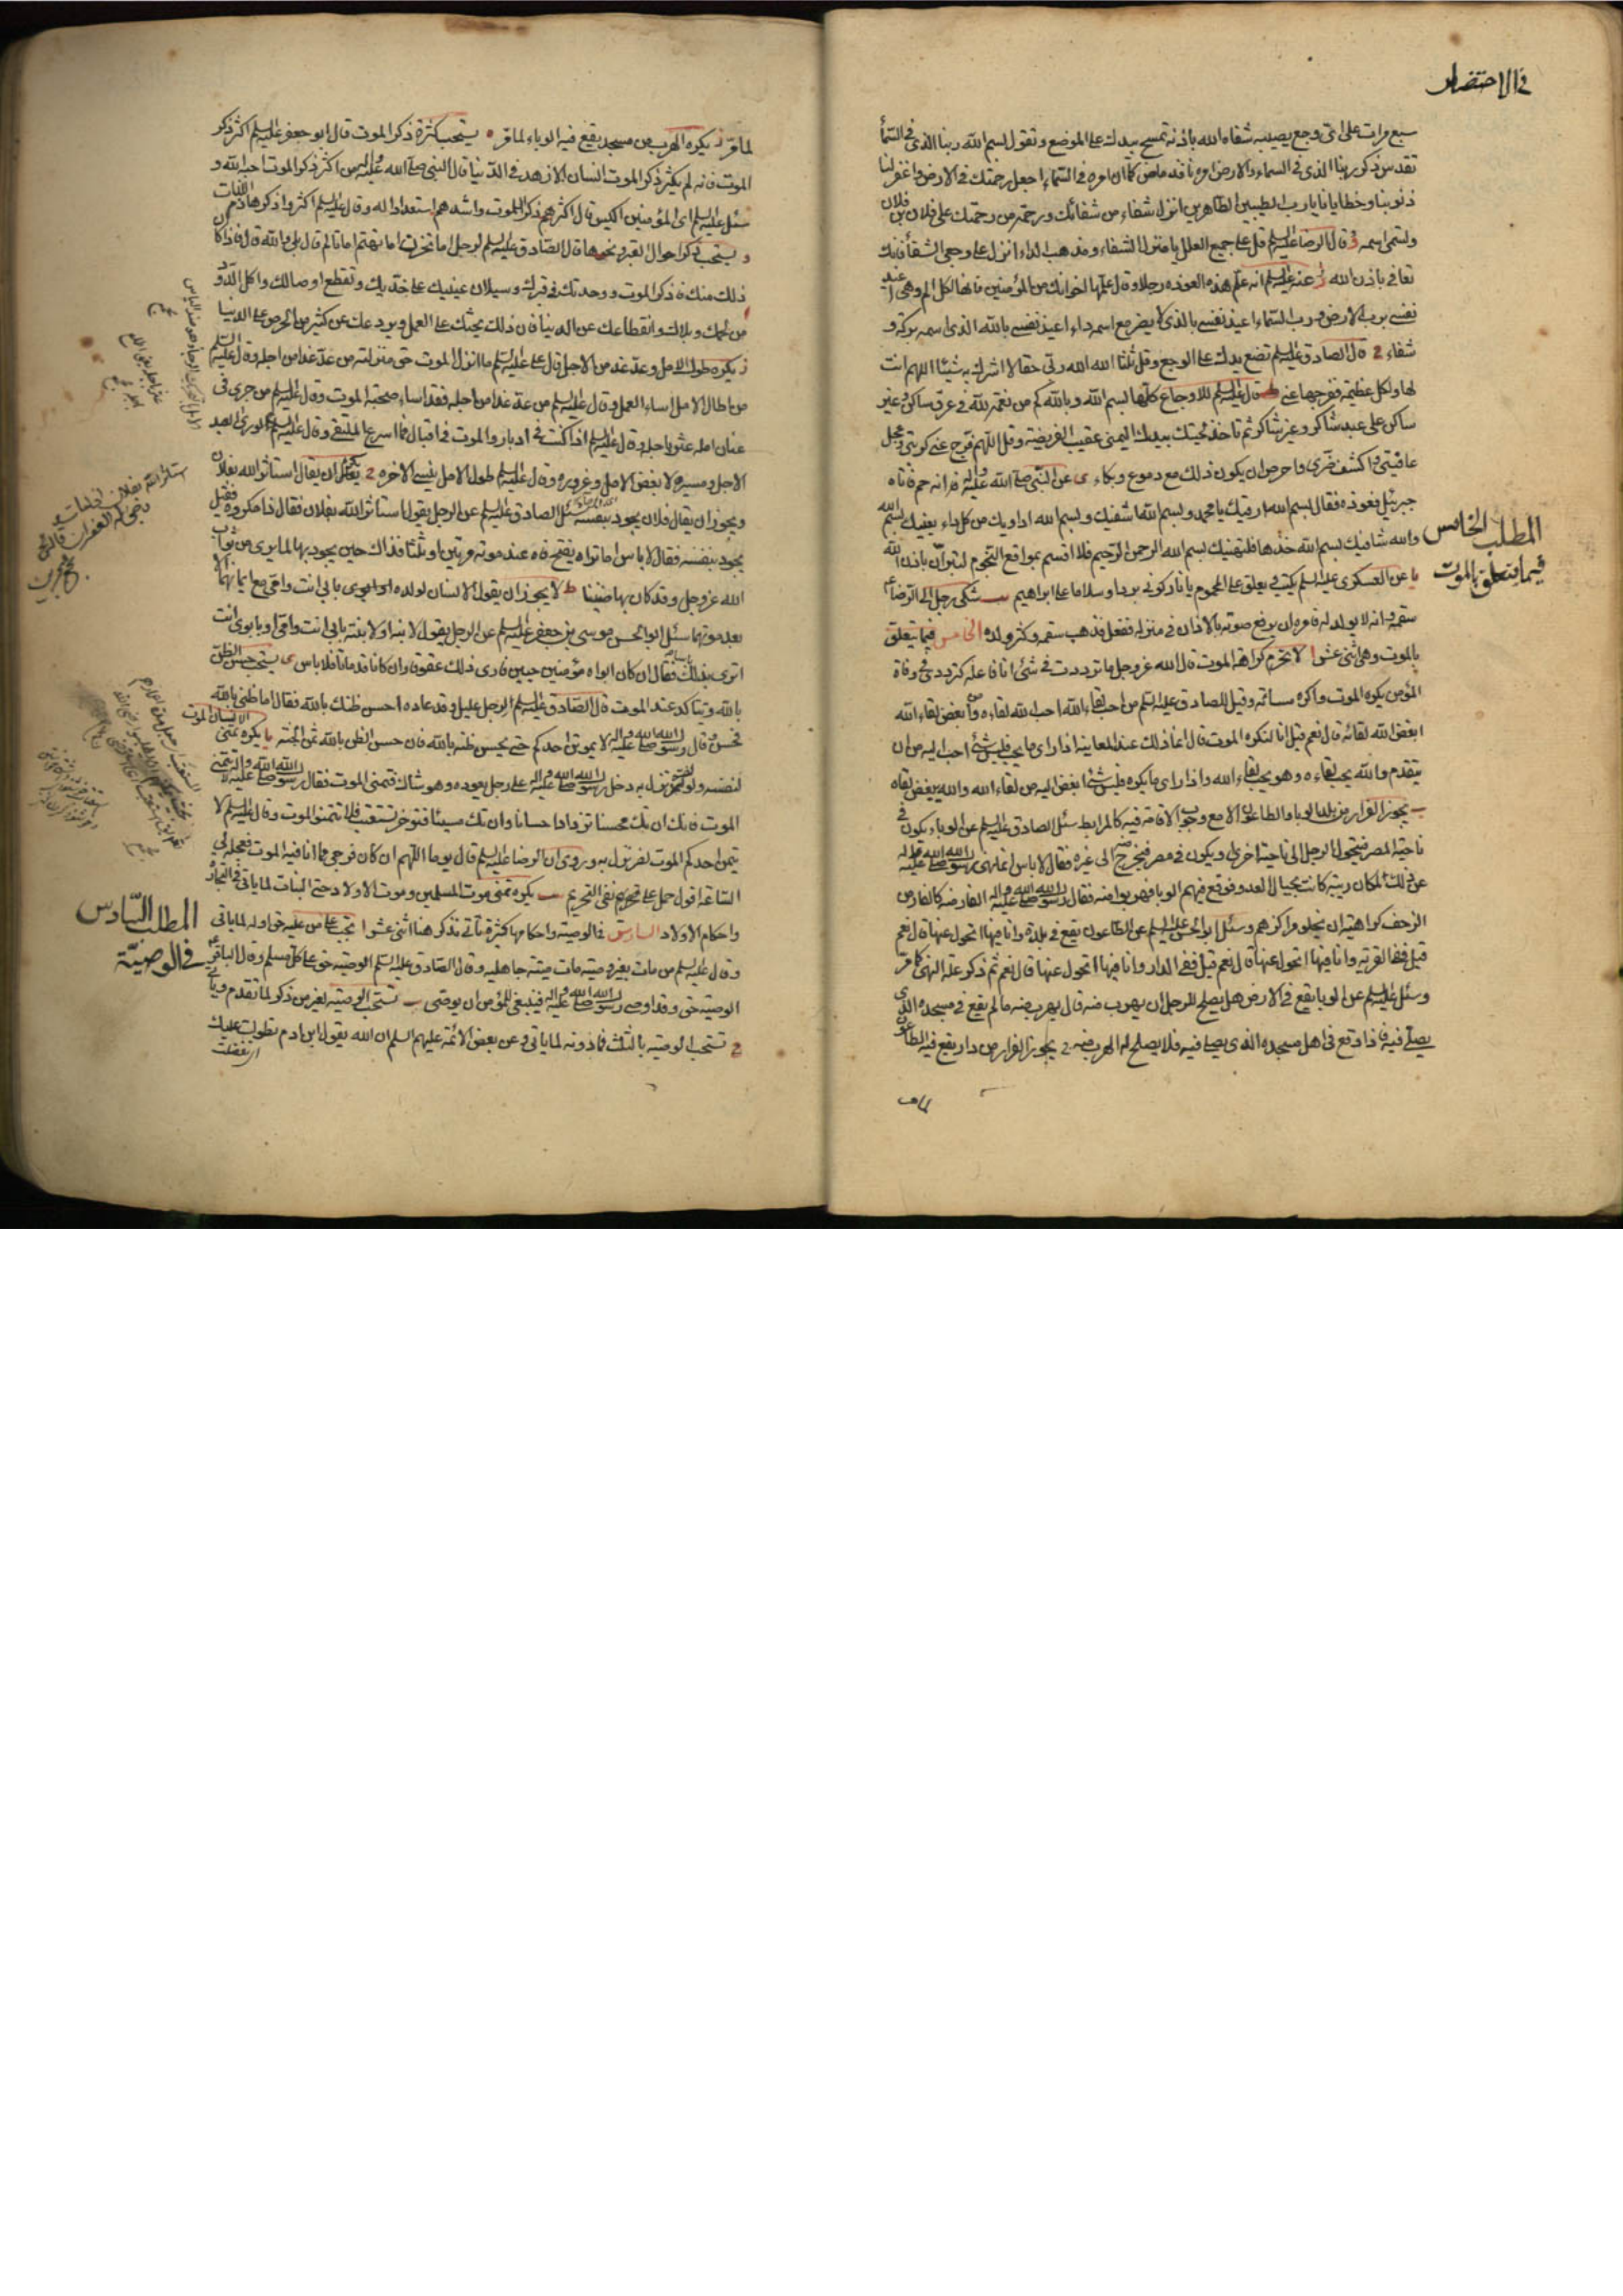 في الاحتضار
سبع مرات على اي وجع يصيبه شفاه الله باذنه تمسح بيدك على الموضع وتقول بسم الله ربنا الذي في السمأ
تقدس ذكره ربنا الذي في السماء والارض امره نافذ ماض كما ان امره في السماء اجعل رحمتك في الارض واغفر لنا
ذنوبنا وخطايانا يا رب الطيبين الطاهرين انزل شفاء من شفائك ورحمة من رحمتك على فلان بن فلان
وتسمي اسمه و قال الرضا عليه السلم قل على جميع العلل يا منزل الشفاء ومذهب الداء انزل على وجعي الشفأ فانك
تعافى باذن الله ز عنه عليه السلم انه علم هذه العوذه رجلا وقال علمها اخوانك من المؤمنين فانها لكل الم وهي اعيذ
نفسي برب الارض ورب السماء اعيذ نفسي بالذي لا يضر مع اسمه داء اعيذ نفسي بالله الذي اسمه بركة و
شفاء ح قال الصادق عليه السلم تضع يدك على الوجع وقل ثلثا الله الله ربي حقا لا اشرك به شيئا اللهم انت
لها ولكل عظيمة ففرجها عني ط قال عليه السلم للاوجاع كلها بسم الله وبالله كم من نعمة لله في عرق ساكن وغير
ساكن على عبد شاكر وغير شاكر ثم تاخذ لحيتك بيدك اليمنى عقيب الفريضة وقل اللهم فرج عني كربتي وعجل
عافيتي واكشف ضري واحرص ان يكون ذلك مع دموع وبكاء ى عن النبي صلى الله عليه واله انه حم فاتاه
جبرئيل فعوذه فقال بسم الله ارقيك يا محمد وبسم الله اشفيك وبسم الله اداويك من كل داء يعنيك بسم الله
والله شافيك بسم الله خذها فلتهنيك بسم الله الرحمن الرحيم فلا اقسم بمواقع النجوم لتبرأن باذن الله
المطلب الخامس
فيما يتعلق بالموت
يا عن العسكري عليه السلم يكتب يعلق على المحموم يا نار كوني بردا وسلاما على ابراهيم يب شكى رجل الى الرضا ع
سقمه وانه لا يولد له فامره ان يرفع صوته بالاذان في منزله ففعل فذهب سقمه وكثر ولده الخامس فيما يتعلق
بالموت وهي اثنى عشر ا لا تحرم كراهة الموت قال الله عز وجل ما ترددت في شئ انا فاعله كترددي في وفاة
المؤمن يكره الموت واكره مساءته وقيل للصادق عليه السلم من احب لقاء الله احب الله لقاءه ومن ابغض لقاء الله
ابغض الله لقائه قال نعم قيل انا لنكره الموت قال انما ذلك عند المعاينة اذا راى ما يحب فليس شئ احب اليه من ان
يتقدم والله يحب لقاءه وهو يحب لقاء الله واذا راى ما يكره فليس شئ ابغض اليه من لقاء الله والله يبغض لقاه
ب يجوز الفرار من بلد الوبا والطاعون الا مع وجوب الاقامة فيه كالمرابط سئل الصادق عليه السلم عن الوباء يكون في
ناحية المصر فيتحول الرجل الى ناحية اخرى او يكون في مصر فيخرج منه الى غيره فقال لا باس انما نهى رسول الله صلى الله عليه واله
عن ذلك لمكان ربيئة كانت بحيال العدو فوقع فيهم الوبا فهربوا منه فقال رسول الله صلى الله عليه واله الفار منه كالفار من
الزحف كراهية ان يخلو مراكزهم وسئل ابو الحسن عليه السلم عن الطاعون يقع في بلدة وانا فيها اتحول عنها قال نعم
قيل ففي القرية وانا فيها اتحول عنها قال نعم قيل ففي الدار وانا فيها اتحول عنها قال نعم ثم ذكر علة النهي كما مر
وسئل عليه السلم عن الوبا يقع في الارض هل يصلح للرجل ان يهرب منه قال يهرب منه ما لم يقع في مسجده الذي
يصلي فيه فاذا وقع في اهل مسجده الذي يصلي فيه فلا يصلح له الهرب منه ج يجوز الفرار من دار يقع فيه الطاعون
لما مر
لما مر د يكره الهرب من مسجد يقع فيه الوباء لما مر ه يستحب كثرة ذكر الموت قال ابو جعفر عليه السلم اكثر ذكر
الموت فانه لم يكثر ذكر الموت انسان الا زهد في الدنيا قال النبي صلى الله عليه واله من اكثر ذكر الموت احبه الله و
سئل عليه السلم اي المؤمنين اكيس قال اكثرهم ذكرا للموت واشدهم استعدادا له وقال عليه السلم اكثروا ذكر هادم اللذات
و يستحب ذكر احوال القبر ونحوها قال الصادق عليه السلم لرجل اما تحزن اما تهتم اما تالم قال بلى والله قال فاذا كان
ذلك منك فاذكر الموت ووحدتك في قبرك وسيلان عينيك على خديك وتقطع اوصالك واكل الدود
من لحمك وبلاك وانقطاعك عن الدنيا فان ذلك يحثك على العمل ويردعك عن كثير من الحرص على الدنيا
ز يكره طول الامل وعد غد من الاجل قال علي عليه السلم ما انزل الموت حق منزلته من عد غدا من اجله وقال عليه السلم
من اطال الامل اساء العمل وقال عليه السلم من عد غدا من اجله فقد اساء صحبة الموت وقال عليه السلم من جرى في
عنان امله عثر باجله وقال عليه السلم اذا كنت في ادبار والموت في اقبال فما اسرع الملتقى وقال عليه السلم لو راى العبد
الاجل ومسيره لابغض الامل وغروره وقال عليه السلم طول الامل ينسى الاخره ح يكره ان يقال استاثر الله بفلان
ويجوز ان يقال فلان يجود بنفسه سئل الصادق عليه السلم عن الرجل يقول استاثر الله بفلان فقال ذا مكروه فقيل
يجود بنفسه فقال لا باس اما تراه يفتح فاه عند موته مرتين او ثلثا فذاك حين يجود بها لما يرى من ثواب
الله عز وجل وقد كان بها ضنينا ط لا يجوز ان يقول الانسان لولده بابي انت وامي مع ايمانهما
بعد موتهما سئل ابو الحسن موسى بن جعفر عليه السلم عن الرجل يقول لابنه او لابنته بابي انت وامي او بابوي انت
اترى بذلك باسا فقال ان كان ابواه مؤمنين حيين فارى ذلك عقوقا وان كانا قد ماتا فلا باس ى يستحب حسن الظن
بالله ويتاكد عند الموت قال الصادق عليه السلم لرجل عليل وقد عاده احسن ظنك بالله فقال اما ظني بالله
فحسن وقال رسول الله صلى الله عليه واله لا يموتن احدكم حتى يحسن ظنه بالله فان حسن الظن بالله ثمن الجنة يا يكره تمنى
الانسان الموت
لنفسه ولو لضر نزل به دخل رسول الله صلى الله عليه واله على رجل يعوده وهو شاك فتمنى الموت فقال رسول الله صلى الله عليه واله لا تتمنى
الموت فانك ان تك محسنا تزداد احسانا وان تك مسيئا فتؤخر تستعتب فلا تتمنوا الموت وقال عليه السلم لا
يتمن احدكم الموت لضر نزل به وروي ان الرضا عليه السلم قال يوما اللهم ان كان فرجي مما انا فيه الموت فعجله لي
الساعة اقول حمل على نفي التحريم يب يكره تمنى موت المسلمين وموت الاولاد حتى البنات لما ياتي في التجارة
المطلب السادس
في الوصية
واحكام الاولاد السادس في الوصية واحكامها كثيرة تاتي نذكر هنا اثنى عشر ا تجب على من عليه حق اوله لما ياتي
وقال عليه السلم من مات بغير وصية مات ميتة جاهلية وقال الصادق عليه السلم الوصية حق على كل مسلم وقال الباقر ع
الوصية حق وقد اوصى رسول الله صلى الله عليه واله فينبغي للمؤمن ان يوصي ب تستحب الوصية لغير من ذكر لما تقدم وياتي
ج تستحب الوصية بالثلث فما دونه لما ياتي وعن بعض الائمة عليهم السلم ان الله يقول ابن ادم تطولت عليك